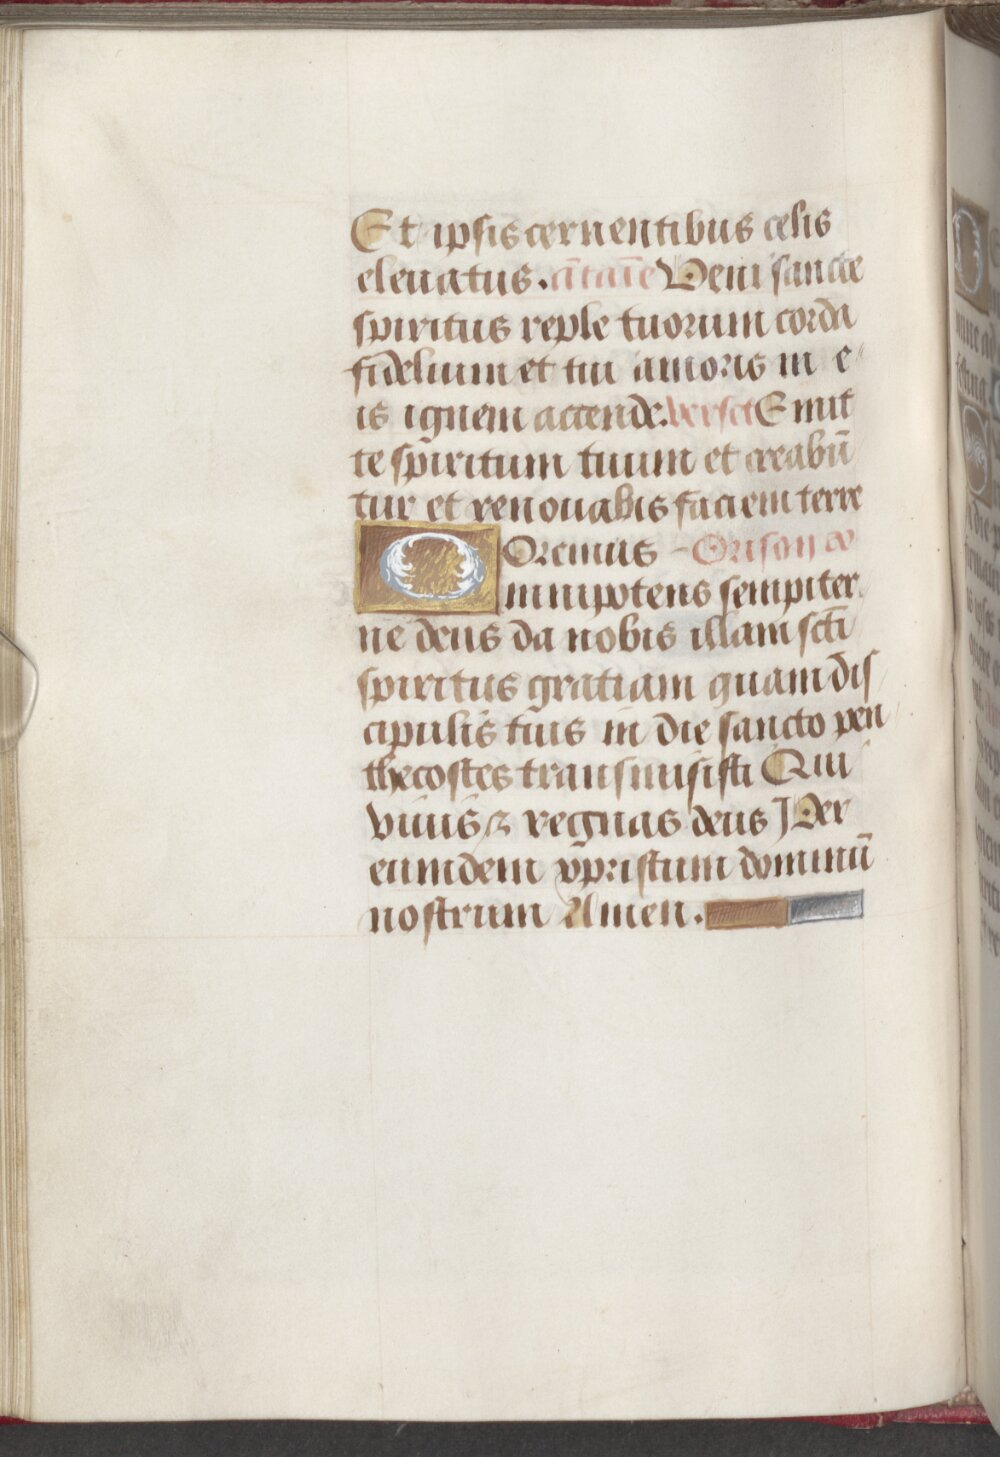 Et ipsis cernentibus celis
eleuatus. añtaīe Veni sancte
spiritus reple tuorum corda
fidelium et tui amoris in e
is ignem accende. verset Emit
te spiritum tuum et creabū
tur et renouabis faciem terre
Oremus Orison
Omnipotens sempiter
ne deus da nobis illam scti
spiritus gratiam quam dis
cipulis tuis in die sancto pen
thecostes transmisisti Qui
viuis & regnas deus Per
eumdem xpristum dominū
nostrum Amen.